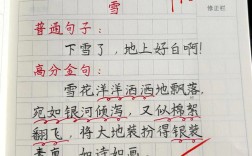 雪
普通句子:
下雪了,地上好白啊!
高分金句:
雪花洋洋洒洒地飘落,
宛如银河倾泻,又似棉絮
翻飞,将大地装扮得银装
素裹,如诗如画。